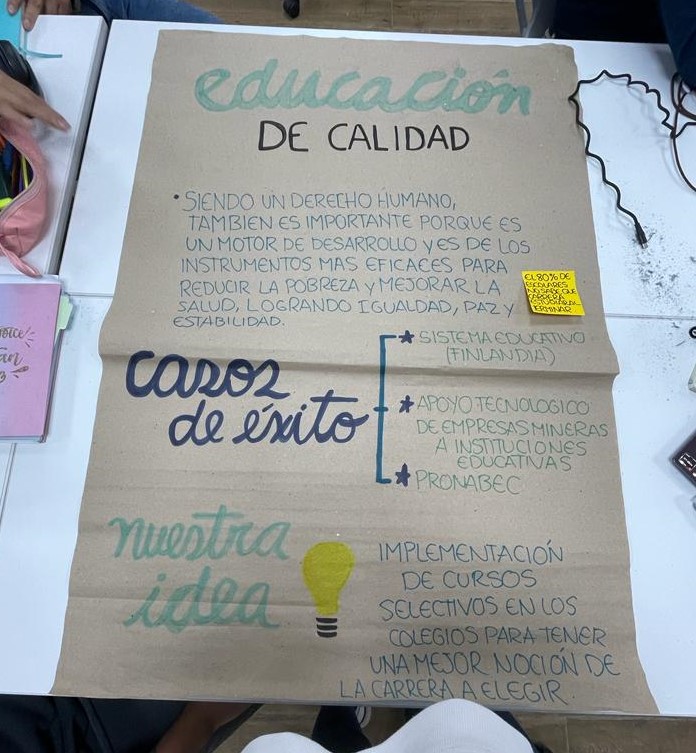 educación
DE CALIDAD
• SIENDO UN DERECHO HUMANO,
TAMBIEN ES IMPORTANTE PORQUE ES
UN MOTOR DE DESARROLLO Y ES DE LOS
INSTRUMENTOS MAS EFICACES PARA
REDUCIR LA POBREZA Y MEJORAR LA
SALUD, LOGRANDO IGUALDAD, PAZ Y
ESTABILIDAD.
EL 80% DE
ESCOLARES
NO SABE QUE
CARRERA
ESTUDIAR AL
TERMINAR
casos
de éxito
SISTEMA EDUCATIVO
(FINLANDIA)
APOYO TECNOLOGICO
DE EMPRESAS MINERAS
A INSTITUCIONES
EDUCATIVAS
PRONABEC
nuestra
idea
IMPLEMENTACIÓN
DE CURSOS
SELECTIVOS EN LOS
COLEGIOS PARA TENER
UNA MEJOR NOCIÓN DE
LA CARRERA A ELEGIR.